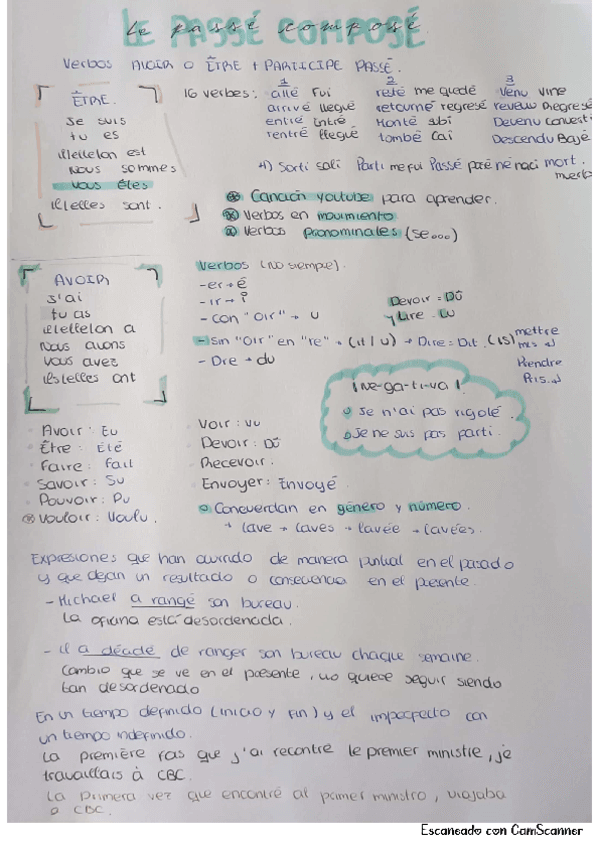 Le passé composé
LE PASSÉ COMPOSÉ
Verbos AVOIR O ÊTRE + PARTICIPE PASSÉ.
ÊTRE.
Je suis
tu es
il/elle/on est
Nous sommes
Vous êtes
il/elles sont.
16 verbes:
1
allé fui
arrivé llegué
entré Entré
rentré llegué
2
resté me quedé
retourné regresé
Monté subí
tombé Caí
3
Venu vine
revenu Regresé
Devenu Convertí
Descendu Bajé
4) Sorti salí Parti me fui Passé pasé né nací mort.
muerto
Canción youtube para aprender.
Verbos en movimiento
Verbos pronominales (se...)
AVOIR
J'ai
tu as
il/elle/on a
Nous avons
Vous avez
ils/elles ont
Verbos (no siempre).
-er → é
-ir → i
- con "oir" → u
- Sin "oir" en "re" → (it/u) → Dire = Dit. (is)
- Dre → du
Devoir = Dû
y Lire - Lu
mettre
mis
Prendre
Pris
¡Ne-ga-ti-va!
Je n'ai pas rigolé.
Je ne suis pas parti.
Avoir: Eu
Être: Été
Faire: fait
Savoir: Su
Pouvoir: Pu
Vouloir: Voulu.
Voir: Vu
Devoir: Dû
Recevoir.
Envoyer: Envoyé.
Concuerdan en género y número.
→ lave → laves → lavée → lavées.
Expresiones que han ocurrido de manera puntual en el pasado
y que dejan un resultado o consecuencia en el presente.
- Michael a rangé son bureau.
La oficina está desordenada.
- il a décidé de ranger son bureau chaque semaine.
Cambio que se ve en el presente, no quiere seguir siendo
tan desordenado
En un tiempo definido (inicio y fin) y el imperfecto con
un tiempo indefinido.
La première fois que j'ai recontré le premier ministre, je
travaillais à CBC.
La primera vez que encontré al primer ministro, viajaba
a CBC.
Escaneado con CamScanner